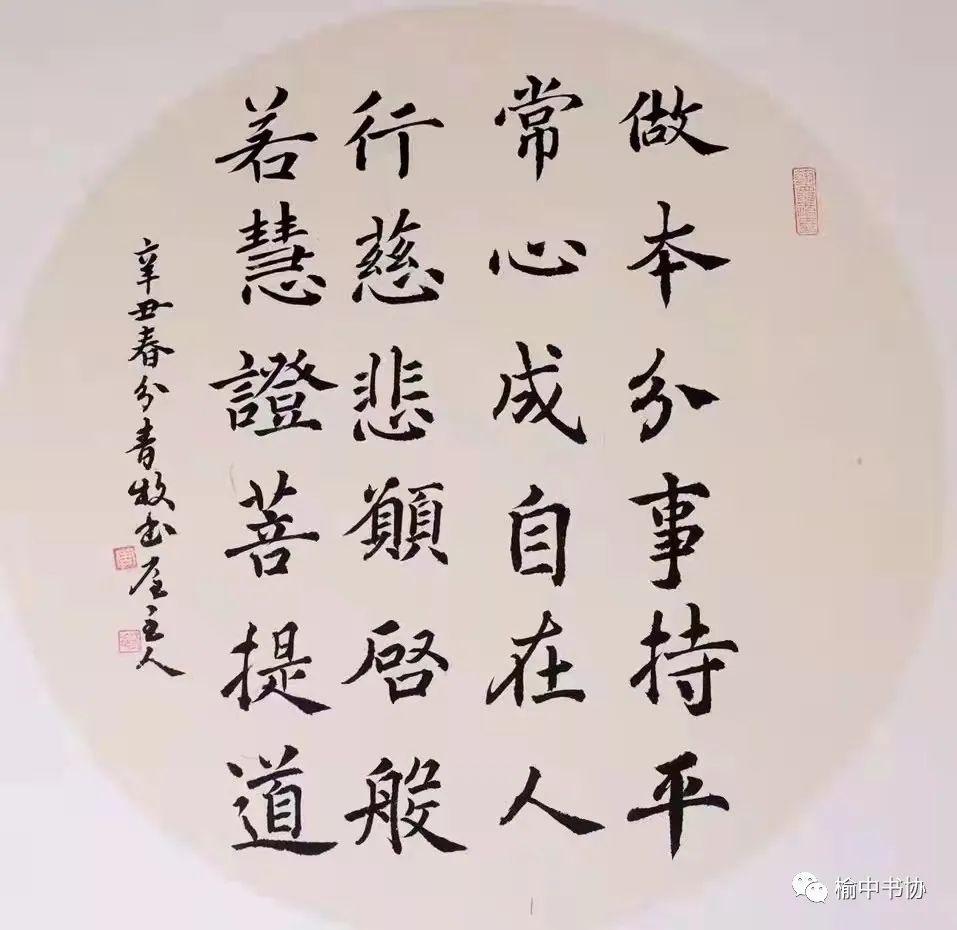 做本分事持平
常心成自在人
行慈悲願啓般
若慧證菩提道
辛丑春分青牧书屋主人
榆中书协